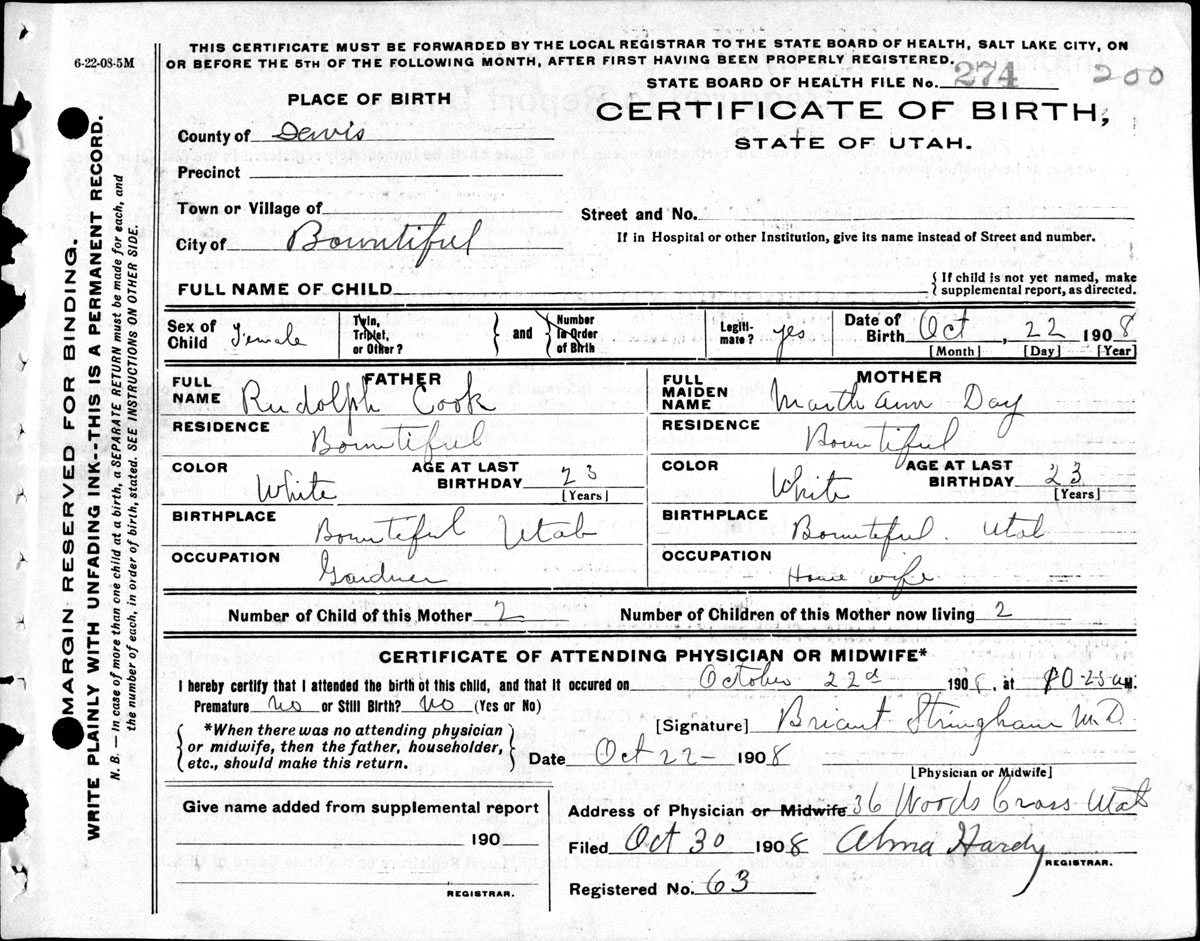 6-22-08-5M
THIS CERTIFICATE MUST BE FORWARDED BY THE LOCAL REGISTRAR TO THE STATE BOARD OF HEALTH, SALT LAKE CITY, ON
OR BEFORE THE 5TH OF THE FOLLOWING MONTH, AFTER FIRST HAVING BEEN PROPERLY REGISTERED.
STATE BOARD OF HEALTH FILE No. 274 200
PLACE OF BIRTH
CERTIFICATE OF BIRTH,
STATE OF UTAH.
County of Davis
Precinct
Town or Village of
Street and No.
City of Bountiful
If in Hospital or other Institution, give its name instead of Street and number.
FULL NAME OF CHILD
{ If child is not yet named, make
supplemental report, as directed.
Sex of Child Female
Twin, Triplet, or Other? } and { Number in Order of Birth
Legiti-mate? yes
Date of Birth Oct, 22 1908
[Month] [Day] [Year]
FATHER
FULL NAME Rudolph Cook
RESIDENCE Bountiful
COLOR White
AGE AT LAST BIRTHDAY 23
[Years]
BIRTHPLACE Bountiful Utah
OCCUPATION Gardner
MOTHER
FULL MAIDEN NAME Marth Ann Day
RESIDENCE Bountiful
COLOR White
AGE AT LAST BIRTHDAY 23
[Years]
BIRTHPLACE Bountiful. Utah
OCCUPATION House wife
Number of Child of this Mother 2
Number of Children of this Mother now living 2
CERTIFICATE OF ATTENDING PHYSICIAN OR MIDWIFE*
I hereby certify that I attended the birth of this child, and that it occured on October 22d 1908, at 10-25 a M.
Premature No or Still Birth? No (Yes or No)
[Signature] Briant Stringham M.D.
{ *When there was no attending physician
or midwife, then the father, householder,
etc., should make this return. }
Date Oct 22- 1908
[Physician or Midwife]
Give name added from supplemental report
190
REGISTRAR.
Address of Physician or Midwife 36 Woods Cross Utah
Filed Oct 30 1908 Alma Hardy
REGISTRAR.
Registered No. 63
MARGIN RESERVED FOR BINDING.
WRITE PLAINLY WITH UNFADING INK--THIS IS A PERMANENT RECORD.
N. B. — In case of more than one child at a birth, a SEPARATE RETURN must be made for each, and
the number of each, in order of birth, stated. SEE INSTRUCTIONS ON OTHER SIDE.